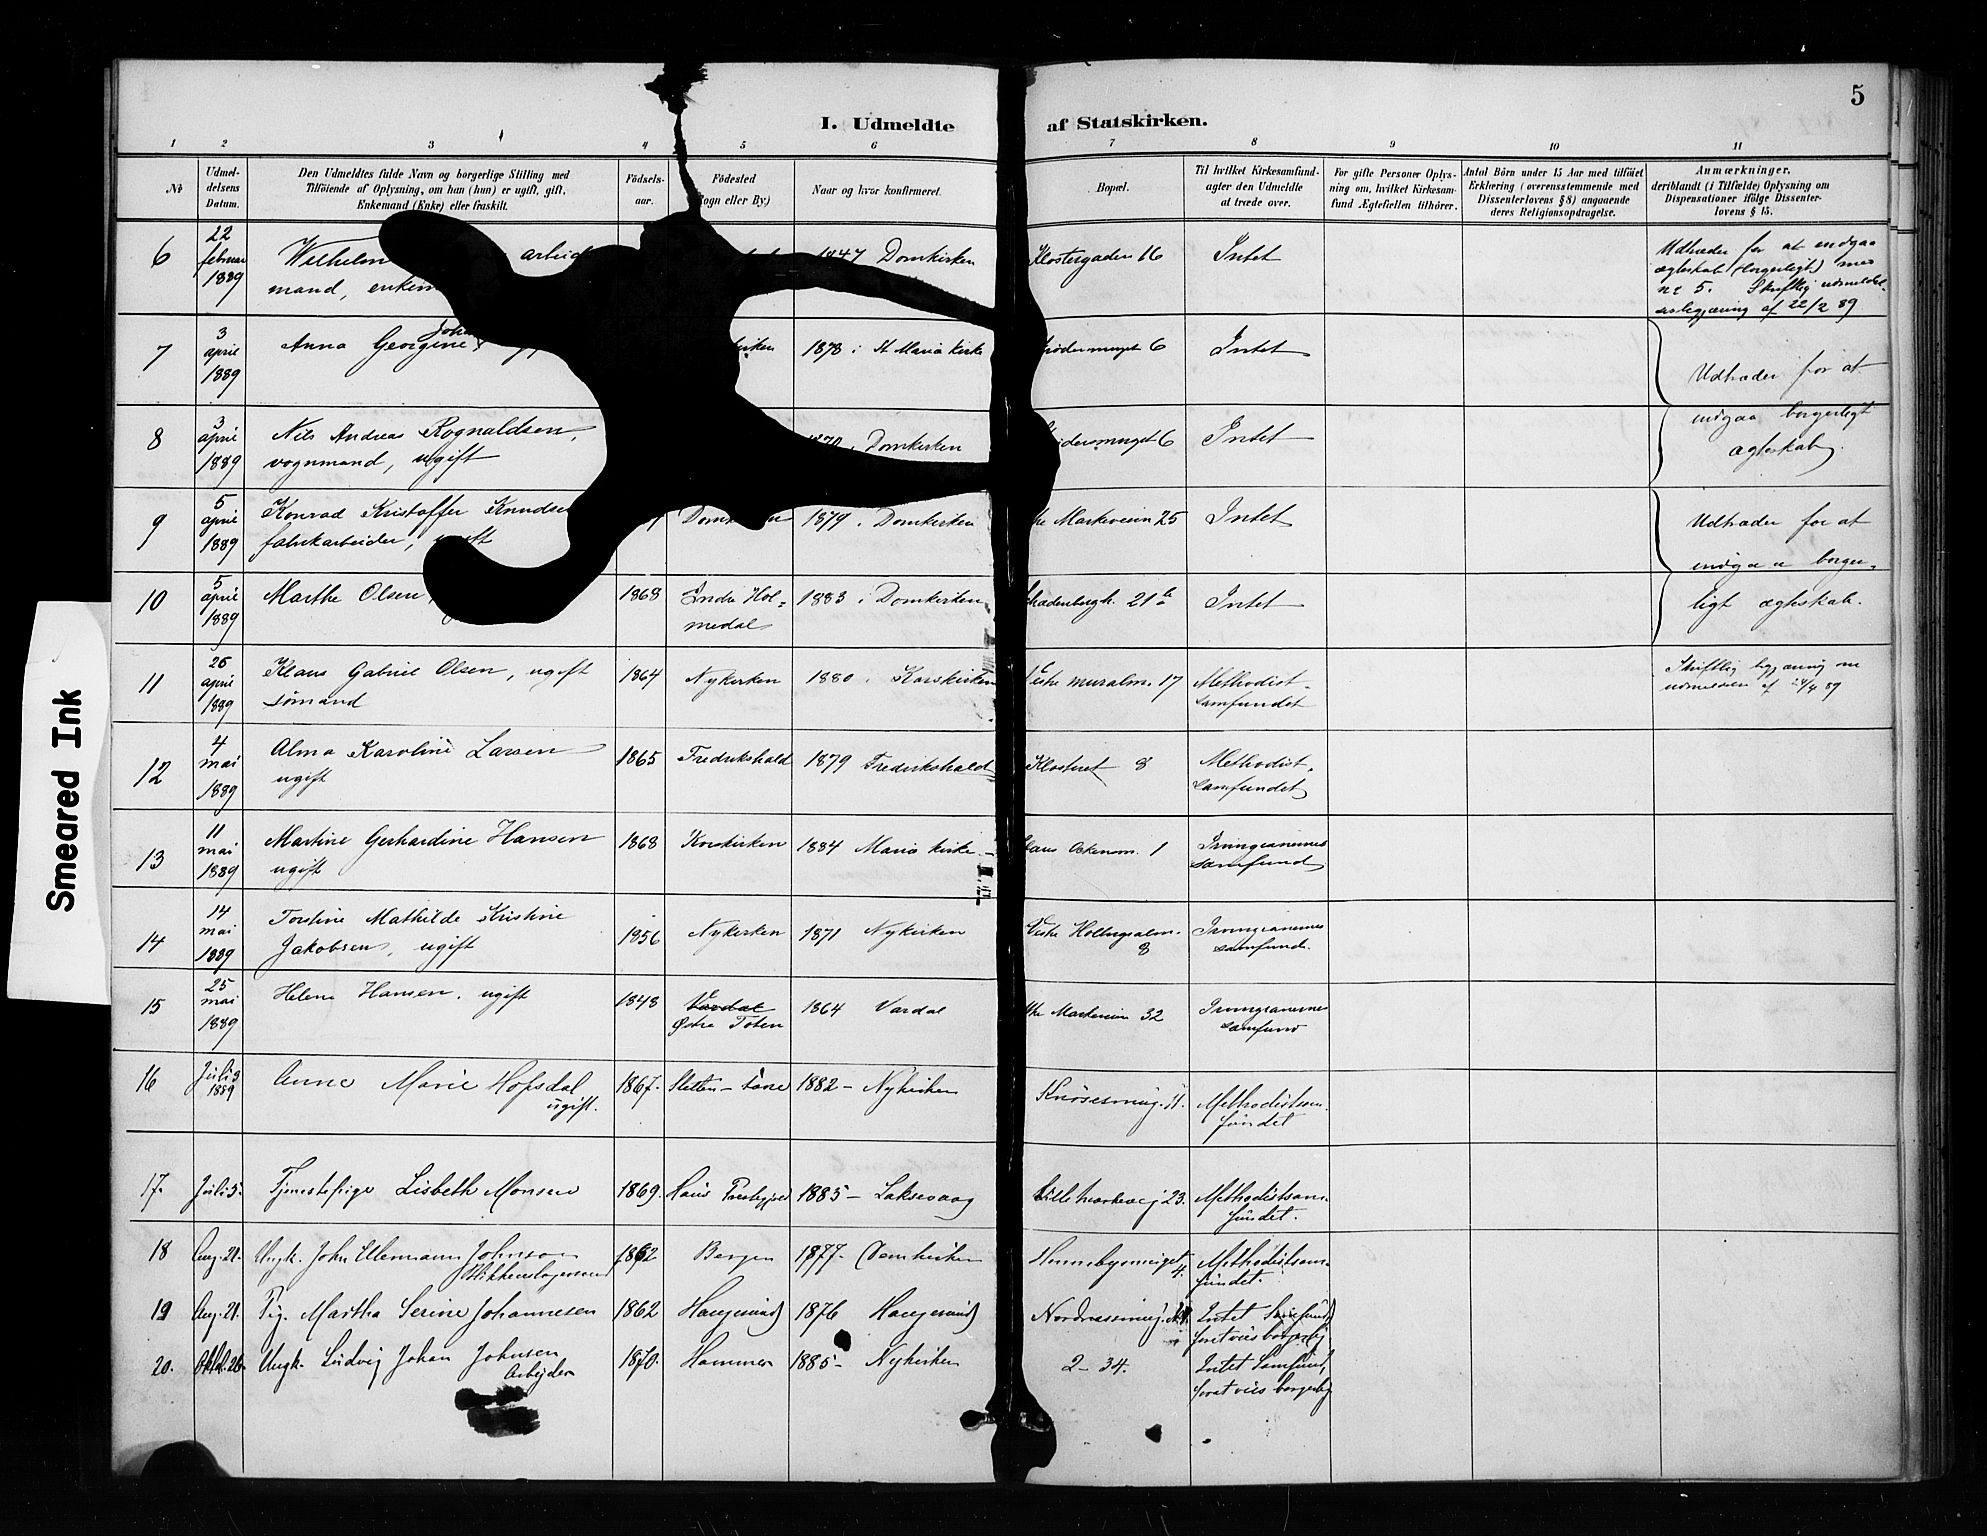 5
I. Udmeldte af Statskirken.
1 2 3 4 5 6 7 8 9 10 11
No
Udmel-
delsens
Datum.
Den Udmeldtes fulde Navn og borgerlige Stilling med
Tilföiende af Oplysning, om han (hun) er ugift, gift,
Enkemand (Enke) eller fraskilt.
Födsels-
aar.
Födested
(Sogn eller By)
Naar og hvor konfirmeret.
Bopæl.
Til hvilket Kirkesamfund-
agter den Udmeldte
at træde over.
For gifte Personer Oplys-
ning om, hvilket Kirkesam-
fund Ægtefællen tilhører.
Antal Börn under 15 Aar med tilföiet
Erklæring (overensstemmende med
Dissenterlovens § 8) angaaende
deres Religionsopdragelse.
Anmærkninger,
deriblandt (i Tilfælde) Oplysning om
Dispensationer ifölge Dissenter-
lovens § 15.
6 22 februar 1889 Wilhelm arbeid
mand, 1847 Domkirken Klostergaden 16 Intet
Udtræder for at indgaa
ægteskab (borgerligt) med
nr 5. Skriftlig udmeldel-
sesbegjæring af 22/2 89
7 3 april 1889 Anna Georgine 1878 i St Maria Kirke 6 Intet
Udtræder for at
indgaa borgerligt
ægteskab.
8 3 april 1889 Nils Andreas Rognaldsen,
vognmand, ugift Domkirken 6 Intet
9 5 april 1889 Konrad Kristoffer Knudsen
fabrikarbeider, 1879 i Domkirken Markeveien 25 Intet
Udtræder for at
indgaa borger-
ligt ægteskab.
10 5 april 1889 Marthe Olsen 1868 Indre Hol=
medal 1883 i Domkirken 21 b Intet
11 26 april 1889 Klaus Gabriel Olsen, ugift
sömand 1864 Nykirken 1880 i Korskirken muralm. 17 Methodist-
samfundet
Skriftlig begjæring om
udmeldelse af 24/4 89
12 4 mai 1889 Alma Karoline Larsen
ugift 1865 Fredrikshald 1879 Fredrikshald Klosteret 8 Methodist-
samfundet
13 11 mai 1889 Martine Gerhardine Hansen
ugift 1868 Korskirken 1884 Maria kirke 1 Irvingianernes
samfund
14 14 mai 1889 Torstine Mathilde Kristine
Jakobsen, ugift 1856 Nykirken 1871 Nykirken 8 Irvingianernes
samfund.
15 25 mai 1889 Helene Hansen, ugift 1848 Vardal
Østre Toten 1864 Vardal Markeveien 32 Irvingianernes
samfund
16 Juli 3 1889 Anne Marie Hopsdal
ugift. 1867. 1882 - Nykirken 11. Methodistsam-
fundet
17. Juli 5. Tjenestepige Lisbeth Monsen 1869. Haus Præstegjeld 1885 - Laksevaag Lille Markevej 23. Methodistsam-
fundet.
18 Aug. 21. Ungk. John Ellemann Johnson
Blikkenslagersvend 1862 Bergen 1877. Domkirken 4. Methodistsam-
fundet.
19 Aug. 21. Pig. Martha Serine Johannesen 1862 Haugesund 1876 Haugesund Intet Samfund,
foretviis borgerlig
20. Oktb. 26. Ungk. Ludvig Johan Johnsen
Arbejder 1870. Hammer 1885 - Nykirken 2 - 34. Intet Samfund,
foretviis borgerlig
Smeared Ink